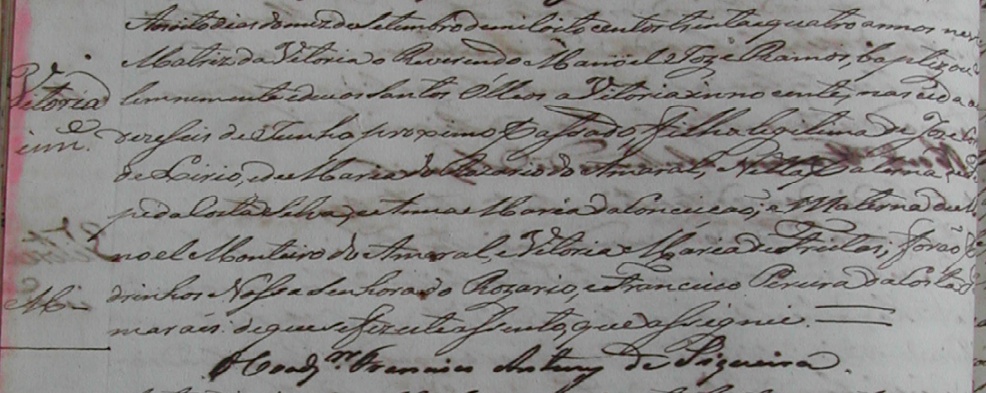 Aos oito dias do mez de Setembro de mil oito centos trinta e quatro annos nes
Matriz da Vitoria o Reverendo Manoel Joze Ramos, baptizou
Vitoria
lemnemente e deu os Santos Oleos a Vitoria innocente, nascida a
inn.
dezeseis de Junho proximo passado, filha legitima de Joze
de Lirio, e de Maria do Rozario do Amaral; Netta Paterna de
pe da Costa Selva, e Anna Maria da Conceição; e Materna de
noel Monteiro do Amaral, e Vitoria Maria de Freitas; forão
drinhos Nossa Senhora do Rozario, e Francisco Pereira da Costa
marães. de que se fez este assento, que assignei.
O Coadj.or Francisco Antunes de Siqueira.